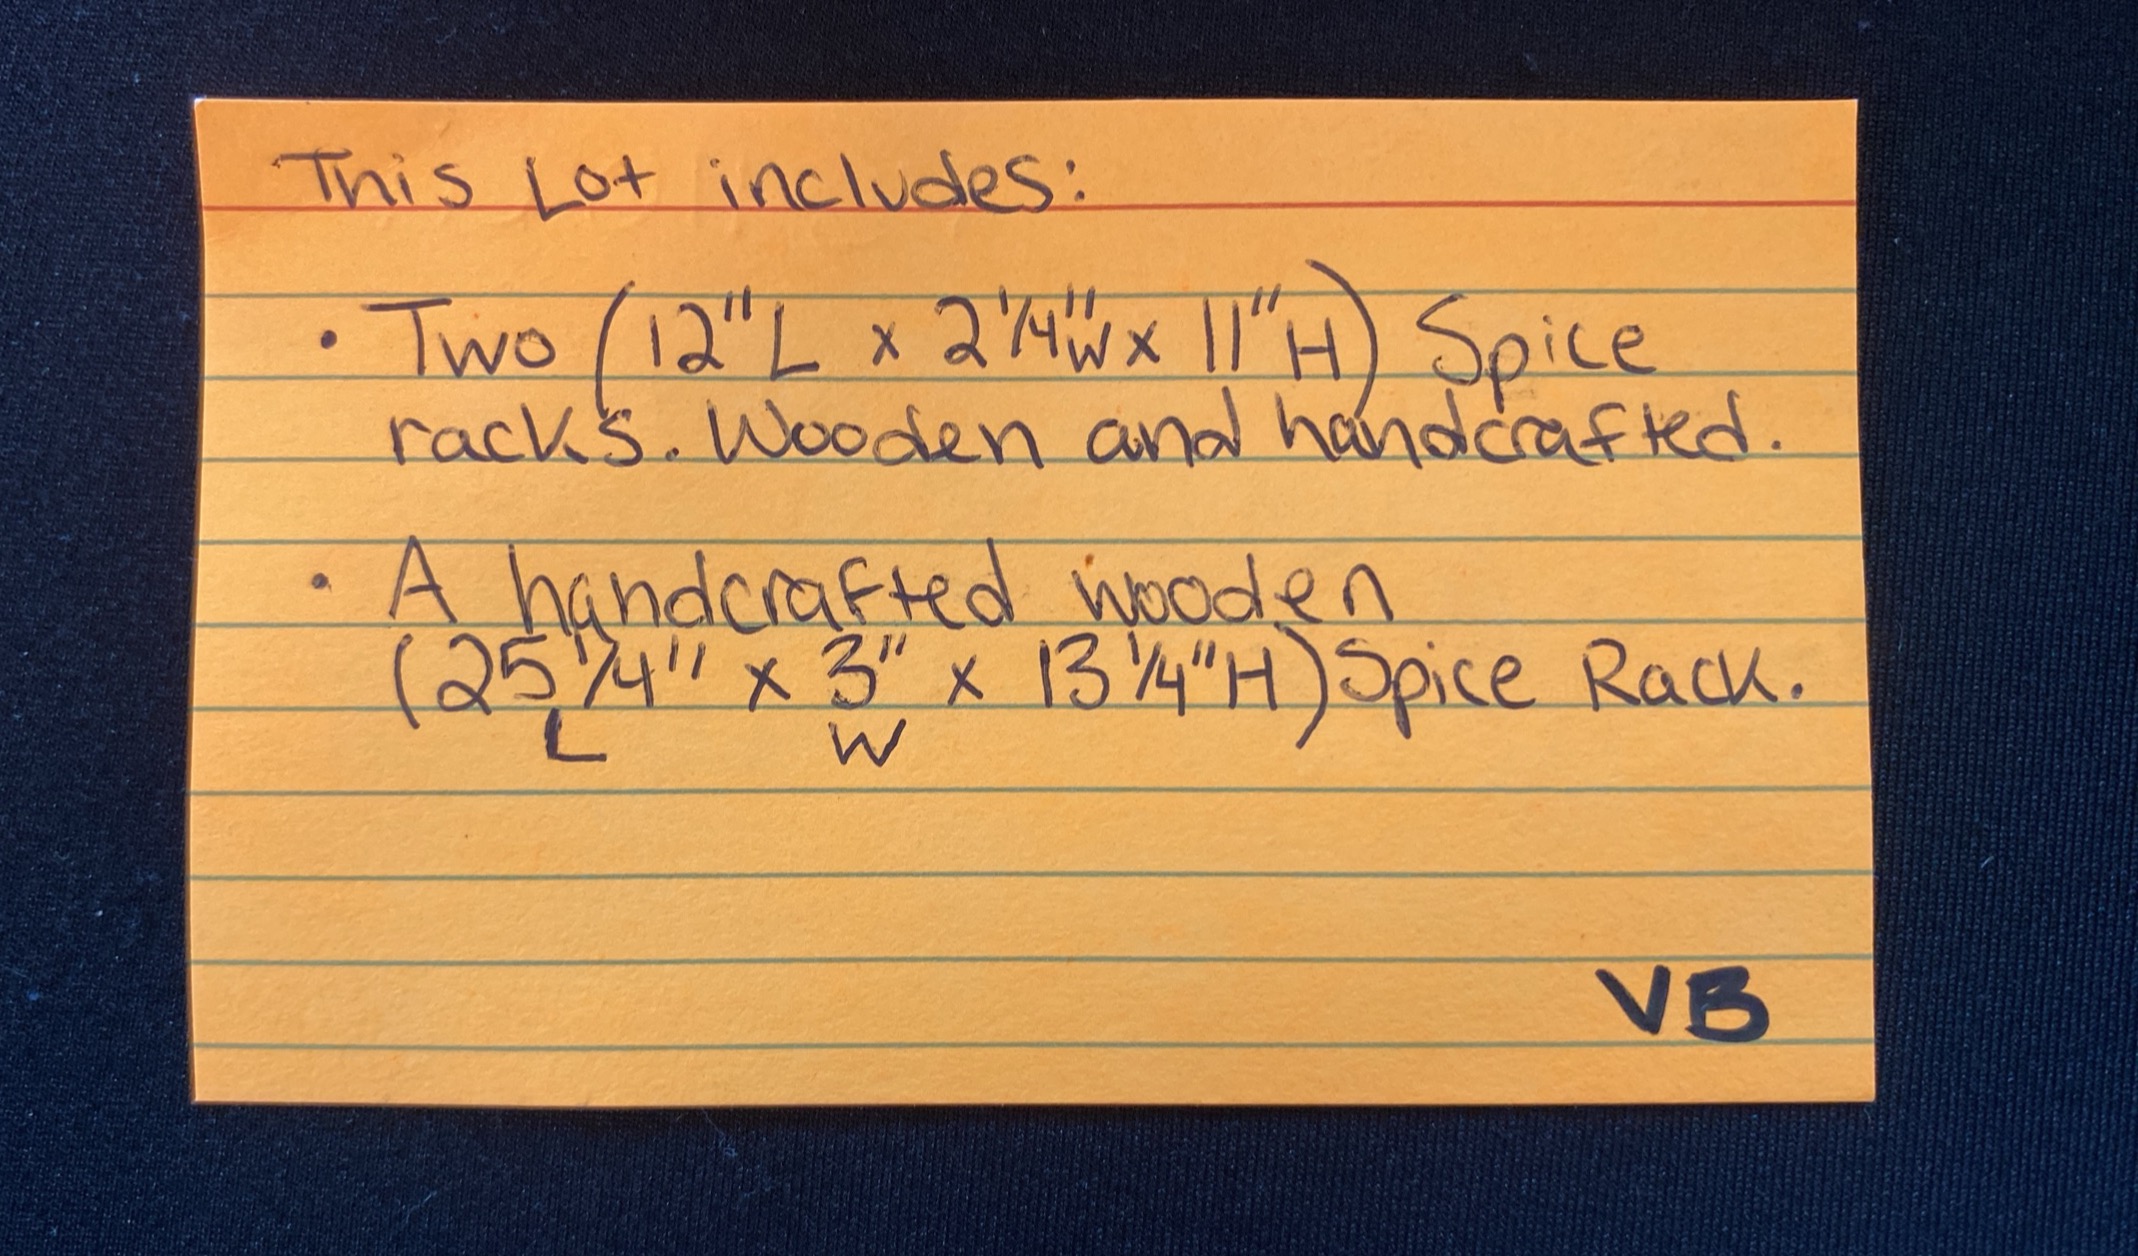 This Lot includes:
• Two (12"L x 2 1/4"W x 11"H) Spice
racks. Wooden and handcrafted.
• A handcrafted wooden
(25 1/4" x 3" x 13 1/4"H) Spice Rack.
L W
VB